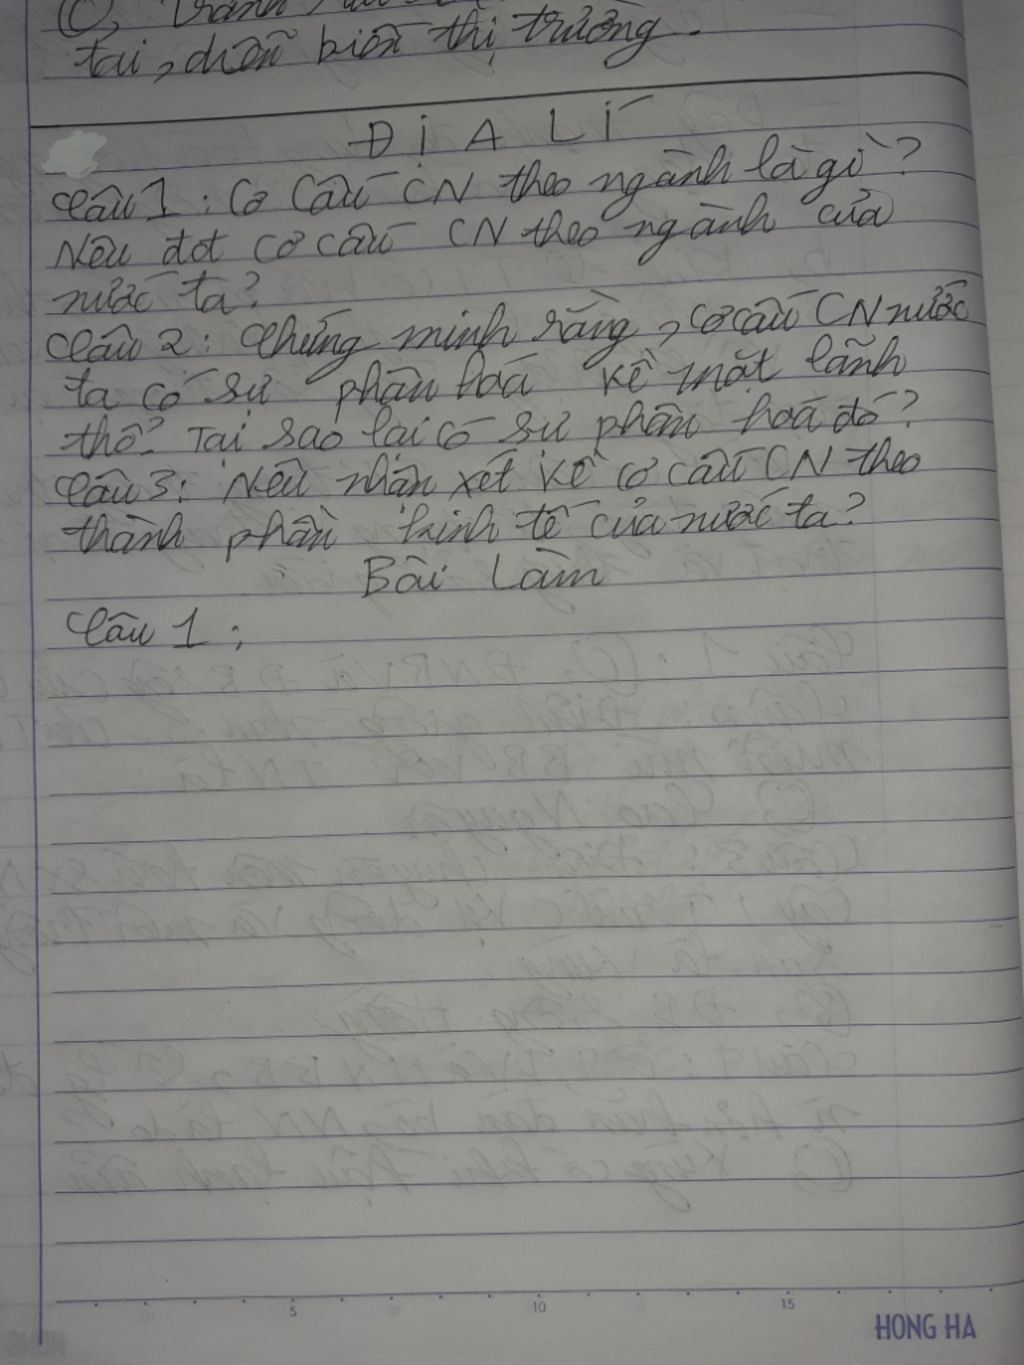 tai, diễn biến thị trường.
ĐỊA LÍ
Câu 1: Cơ Cấu CN theo ngành là gì?
Nêu đđ cơ cấu CN theo ngành của
nước ta?
Câu 2: Chứng minh rằng, cơ cấu CN nước
ta có sự phân hoá về mặt lãnh
thổ. Tại sao lại có sự phân hoá đó?
Câu 3: Nêu nhận xét về cơ cấu CN theo
thành phần kinh tế của nước ta?
Bài Làm
Câu 1:
5 10 15
HONG HA